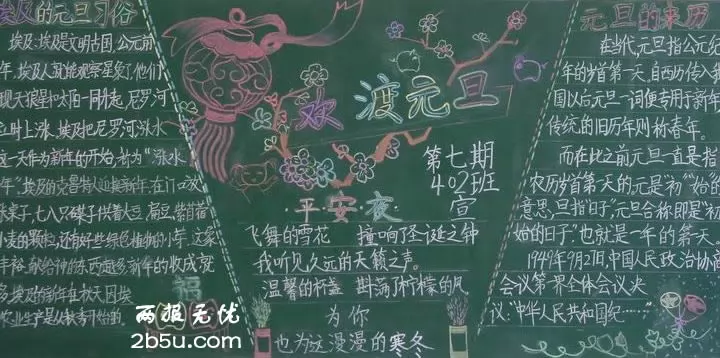 埃及的元旦习俗
埃及:埃及是文明古国,公元前
年,埃及人通常观察星象了,他们
现天狼星和太阳一同升起,尼罗河
立时上涨,埃及把尼罗河涨水
这一天作为新年的开始,称为"涨水
年"埃及的克鲁特人迎接新年,在门口放
张桌子,七八只碟子供着大豆、扁豆、紫苜蓿
小麦的颗粒,还有好些绿色植物的小芽,这象
丰裕,献给神的东西越多新年的收成
多,埃及的新年在秋天,因埃
农业生产是从秋季开始的。
福
欢渡元旦
第七期
402班
宣
平安夜
飞舞的雪花 撞响了圣诞之钟
我听见久远的天籁之声。
温馨的祈盖 斟满了柠檬的风
为你
也为这漫漫的寒冬
元旦的来历
在当代元旦指公元纪
年的岁首第一天,自西历传入我
国以后元旦一词便专用于新年
传统的旧历年则称春年。
而在此之前元旦一直是指
农历岁首第一天的,元是"初""始"的
意思,旦指"日子","元旦"合称即是"初
始的日子",也就是一年的第一天。
1949年9月2日,中国人民政治协商
会议第一界全体会议决
议:"中华人民共和国纪……
两报无忧
2b5u.com